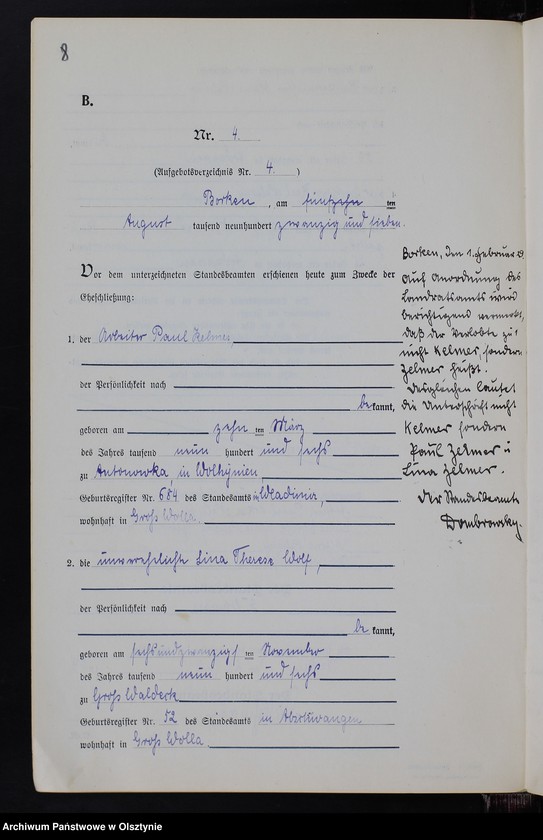 8
B.
Nr. 4.
(Aufgebotsverzeichnis Nr. 4. )
Borken, am fünfzehn ten
August tausend neunhundert zwanzig und sieben.
Vor dem unterzeichneten Standesbeamten erschienen heute zum Zwecke der
Eheschließung:
1. der Arbeiter Paul Kelmer,
der Persönlichkeit nach
be kannt,
geboren am zehn ten März
des Jahres tausend neun hundert und sechs
zu Antonowka, in Wolhynien
Geburtsregister Nr. 684 des Standesamts
wohnhaft in Groß Wolla.
2. die unverehelichte Lina Therese Wolf,
der Persönlichkeit nach
be kannt,
geboren am sechsundzwanzigs ten November
des Jahres tausend neun hundert und sechs
zu Groß Walderk
Geburtsregister Nr. 52 des Standesamts in
wohnhaft in Groß Wolla
Borken, den 1. Februar
Auf Anordnung des
Landratsamts wird
berichtigend vermerkt,
daß der Verlobte zu 1
nicht Kelmer, sondern
Zelmer heißt.
Desgleichen lautet
die Unterschrift nicht
Kelmer sondern
Paul Zelmer u
Lina Zelmer.
Der Standesbeamte
Dombrowsky.
Archiwum Państwowe w Olsztynie